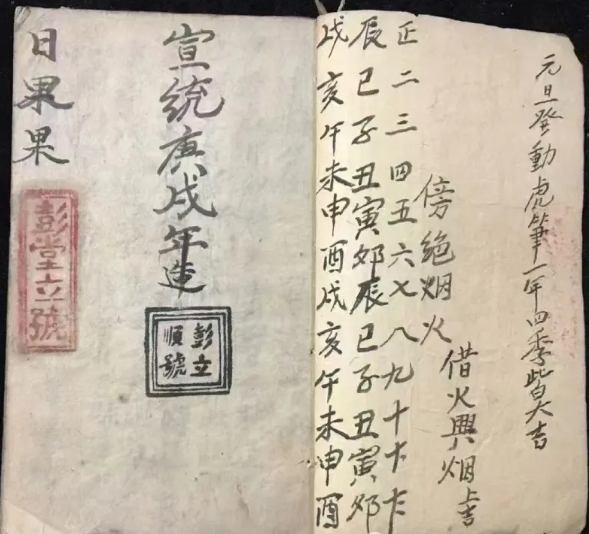 元旦發動虎筆一年四季皆大吉
借火興烟上吉
傍絶烟火
正二三四五六七八九十十一十二
辰巳子丑寅卯辰巳子丑寅卯
戌亥午未申酉戌亥午未申酉
宣統庚戌年造
彭立
順號
日果果
彭堂立號